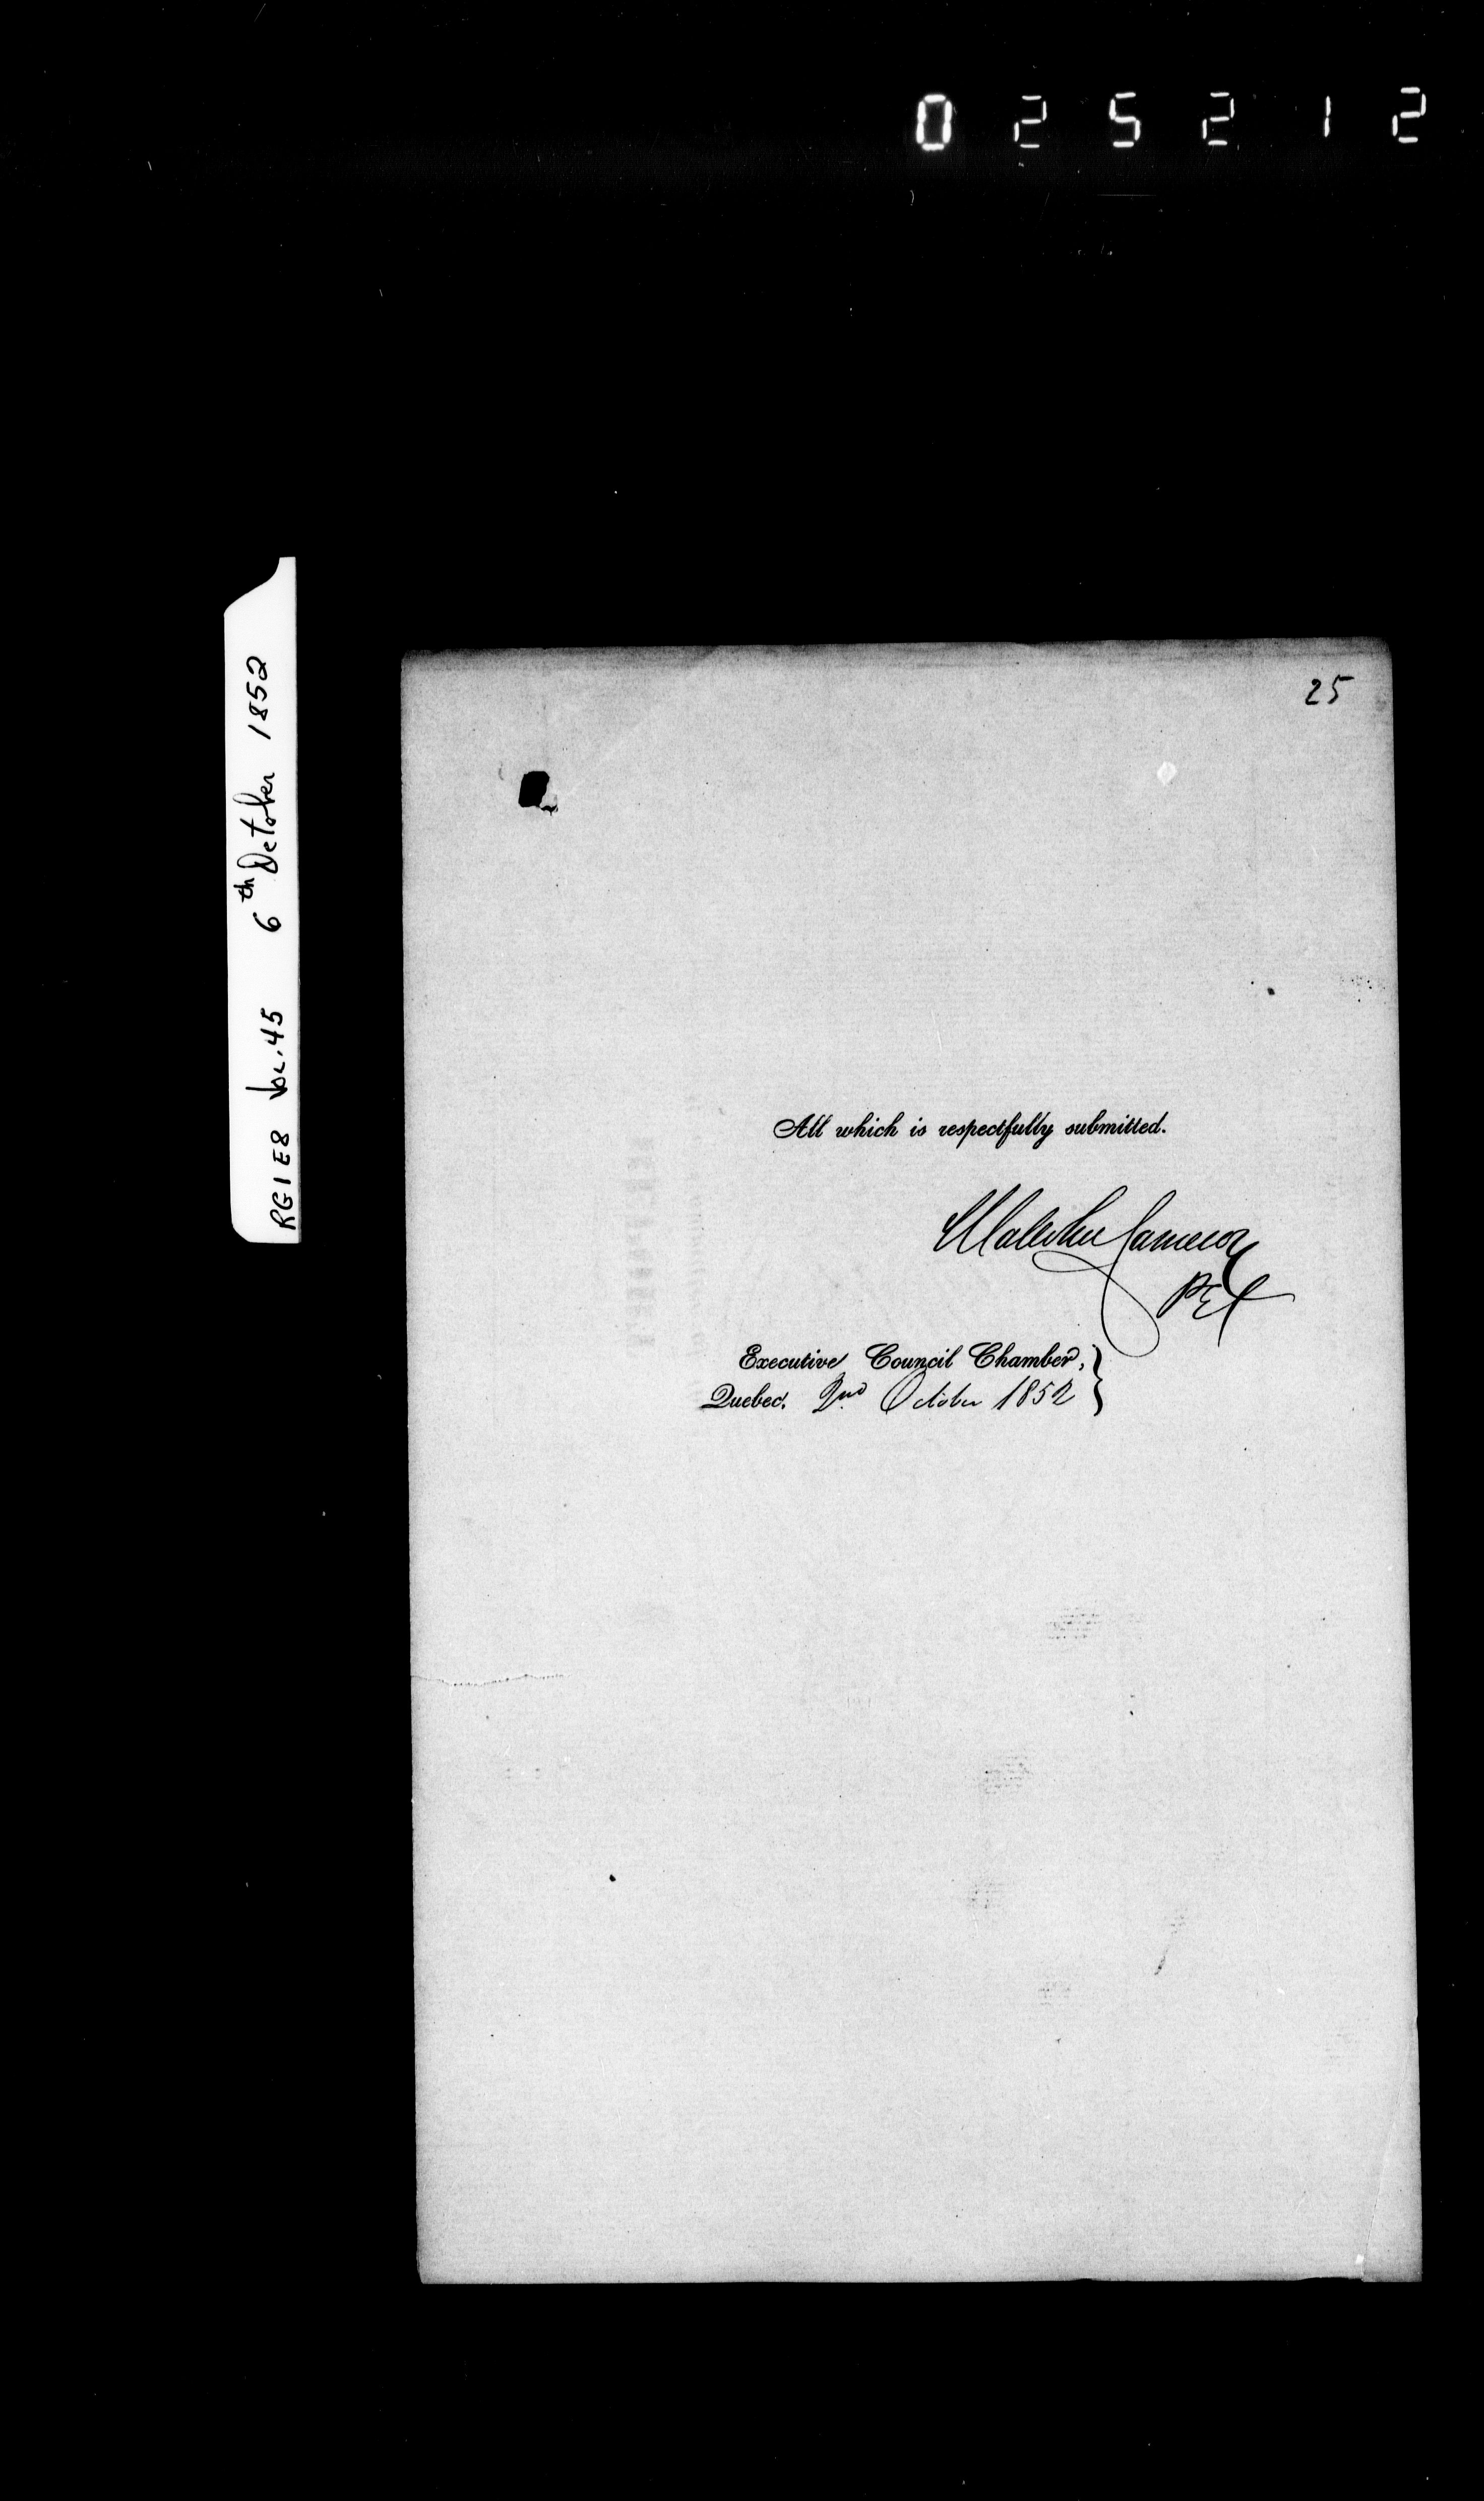 025212
RG1E8 Vol. 45 6th October 1852
25
All which is respectfully submitted.
Malcolm Cameron
PEC
Executive Council Chamber,
Quebec, 2nd October 1852